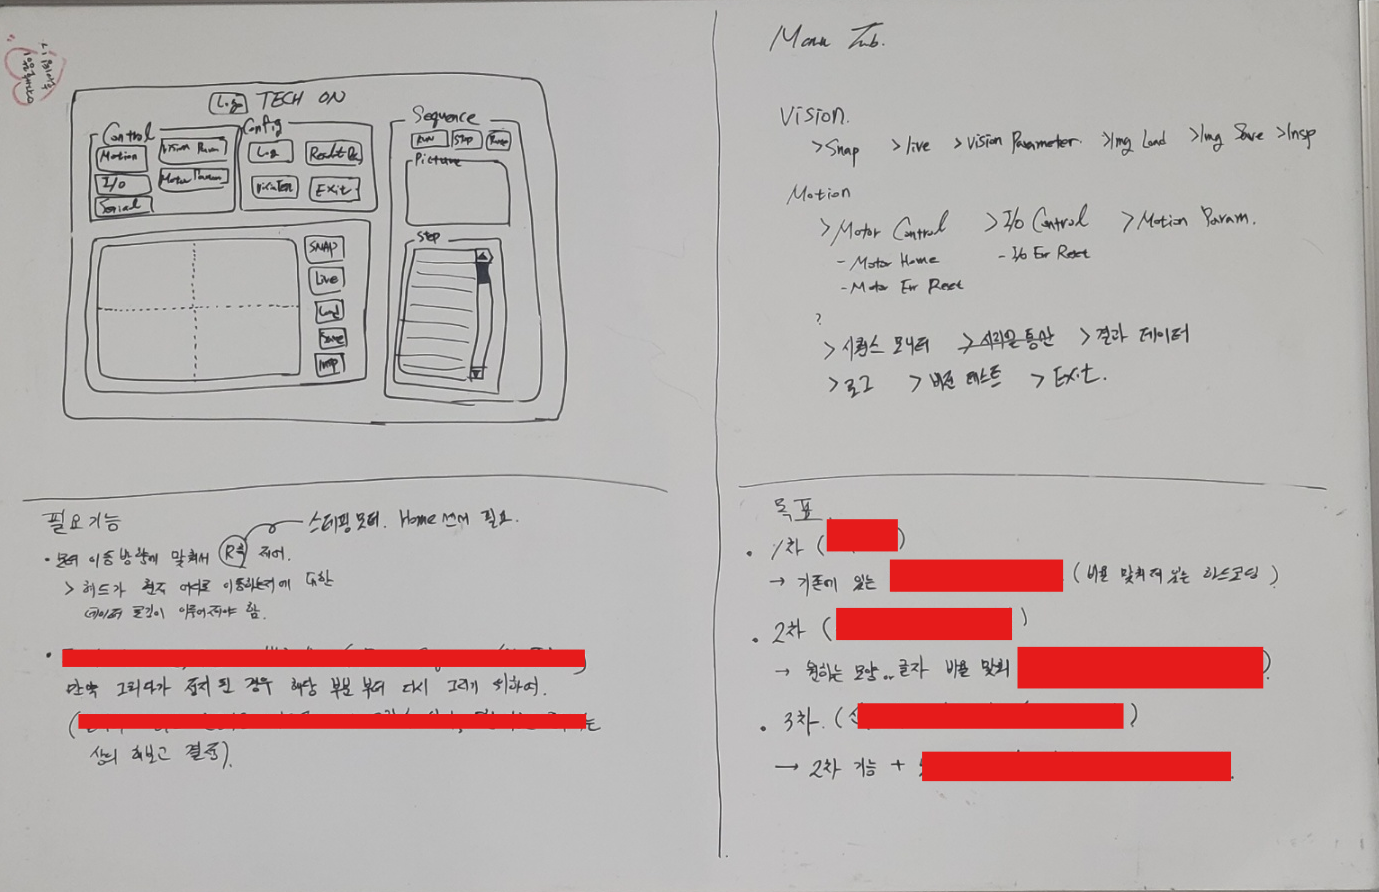 Menu Tab.
Log TECH ON
Control
Motion
Vision Param
I/O
Motor Param
Serial
Config
Log
Result Da
Vision Test
Exit
Sequence
RUN Stop
Picture
Step
SNAP
Live
Load
Save
Insp
Vision.
>Snap >live >Vision Parameter. >Img Load >Img Save >Insp
Motion
>Motor Control >I/O Control >Motion Param.
- Motor Home - I/o Err Reset
- Motor Err Reset
?
>시퀀스 모니터 >시리얼 통신 >결과 데이터
>로그 >비전 테스트 >Exit.
필요기능
스테핑모터. Home 센서 필요.
· 모터 이동방향에 맞춰서 R축 제어.
> 헤드가 현재 어디로 이동하는지에 대한
데이터 로깅이 이루어져야 함.
만약 그리다가 정지 된 경우 해당 부분 부터 다시 그리기 위하여.
상의 해보고 결정).
목표
· 1차 ( )
→ 기존에 있는 (비율 맞춰져 있는 하드코딩)
· 2차 ( )
→ 원하는 모양.. 글자 비율 맞춰 ).
· 3차. ( )
→ 2차 기능 +